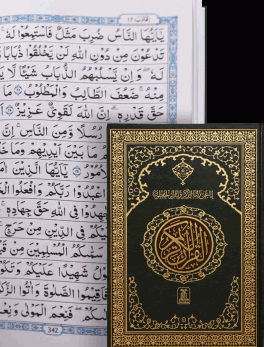 يٰٓاَيُّهَا النَّاسُ ضُرِبَ مَثَلٌ فَاسْتَمِعُوْا لَهٗ
تَدْعُوْنَ مِنْ دُوْنِ اللّٰهِ لَنْ يَّخْلُقُوْا ذُبَابًا
لَهٗ ؕ وَ اِنْ يَّسْلُبْهُمُ الذُّبَابُ شَيْـًٔا لَّا
مِنْهُ ؕ ضَعُفَ الطَّالِبُ وَ الْمَطْلُوْبُ
حَقَّ قَدْرِهٖ ؕ اِنَّ اللّٰهَ لَقَوِيٌّ عَزِيْزٌ
رُسُلًا وَّ مِنَ النَّاسِ ؕ اِنَّ
مَا بَيْنَ اَيْدِيْهِمْ وَ مَا
يٰٓاَيُّهَا الَّذِيْنَ
اعْبُدُوْا رَبَّكُمْ وَ افْعَلُوا
جَاهِدُوْا فِي اللّٰهِ حَقَّ جِهَادِهٖ ؕ
فِي الدِّيْنِ مِنْ حَرَجٍ
سَمّٰىكُمُ الْمُسْلِمِيْنَ مِنْ
شَهِيْدًا عَلَيْكُمْ وَ تَكُوْنُوْا
فَاَقِيْمُوا الصَّلٰوةَ وَ اٰتُوا
فَنِعْمَ الْمَوْلٰى وَ
342
القرآن الكريم